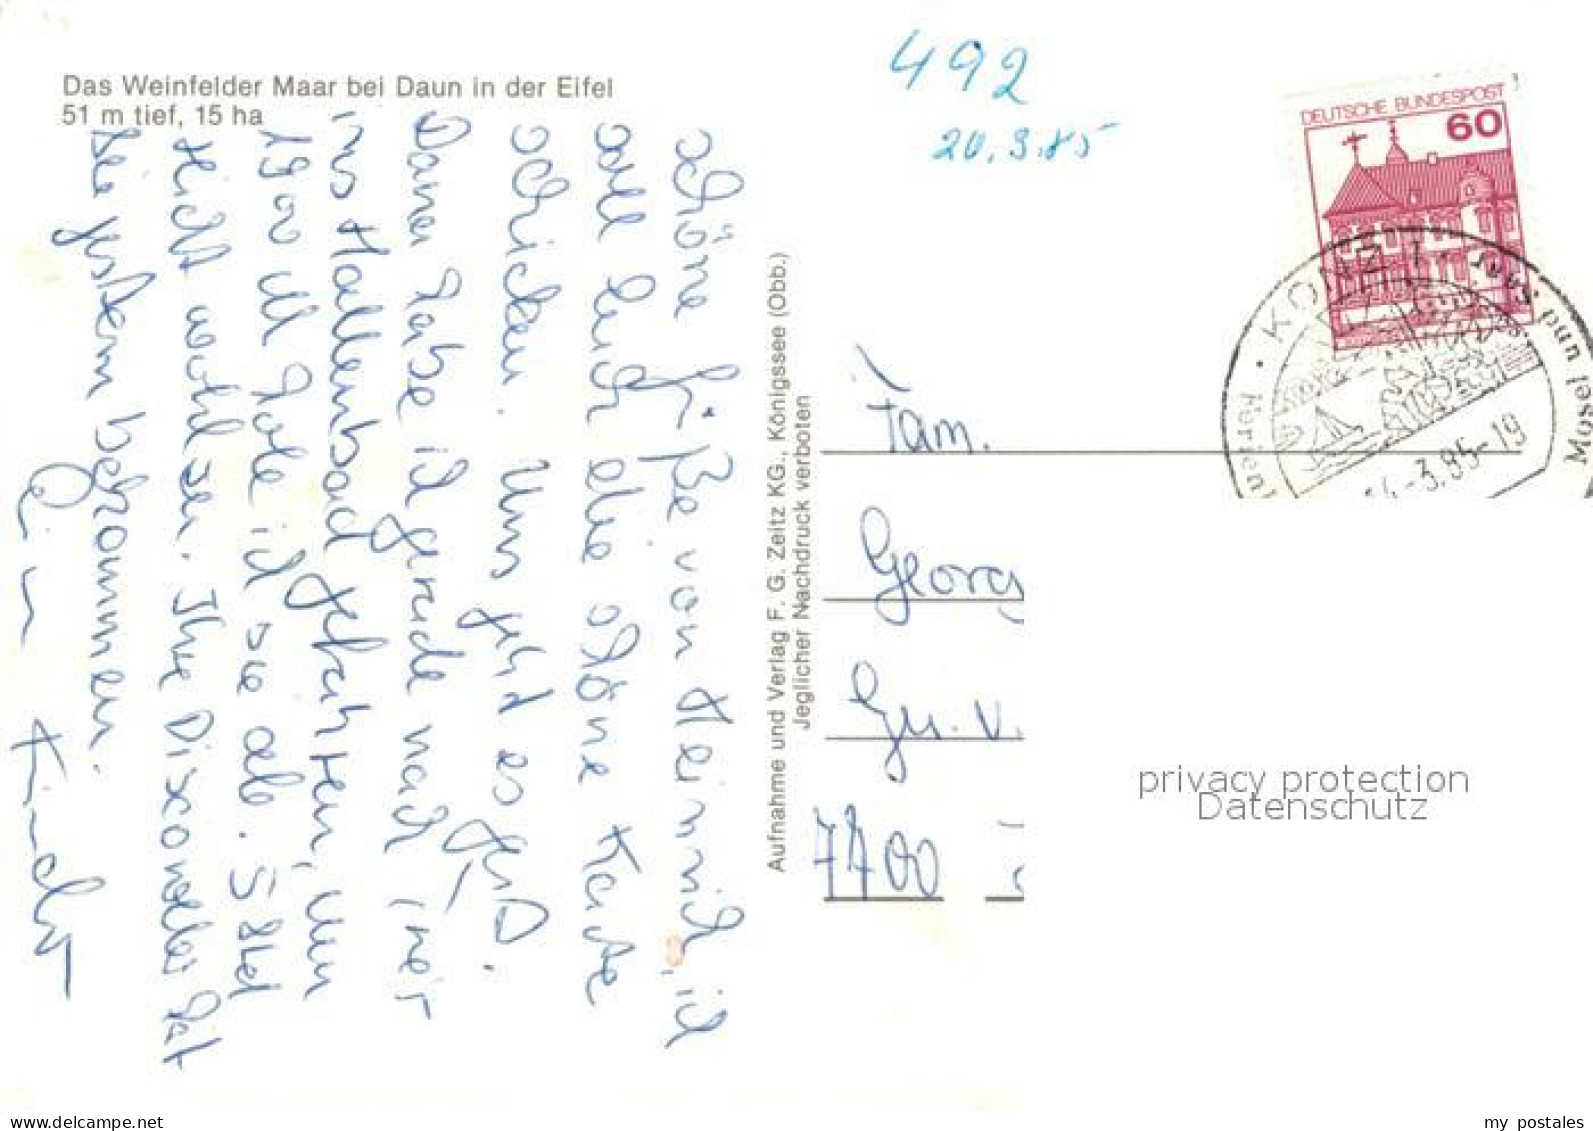 Das Weinfelder Maar bei Daun in der Eifel
51 m tief, 15 ha
492
20.3.85
DEUTSCHE BUNDESPOST
60
KONZ 1
Mosel und Saar
-3.85-19
Schöne Grüße von Heinrich, ich
soll Euch die schöne Karte
schicken. Uns geht es gut.
Dana habe ich gerade nach
ins Hallenbad gefahren, um
1900 Uhr hole ich sie ab.
wohl sei. Ihre hat
sie gestern bekommen.
Aufnahme und Verlag F. G. Zeitz KG., Königssee (Obb.)
Jeglicher Nachdruck verboten
Fam.
Georg
7700
privacy protection
Datenschutz
www.delcampe.net
my_postales